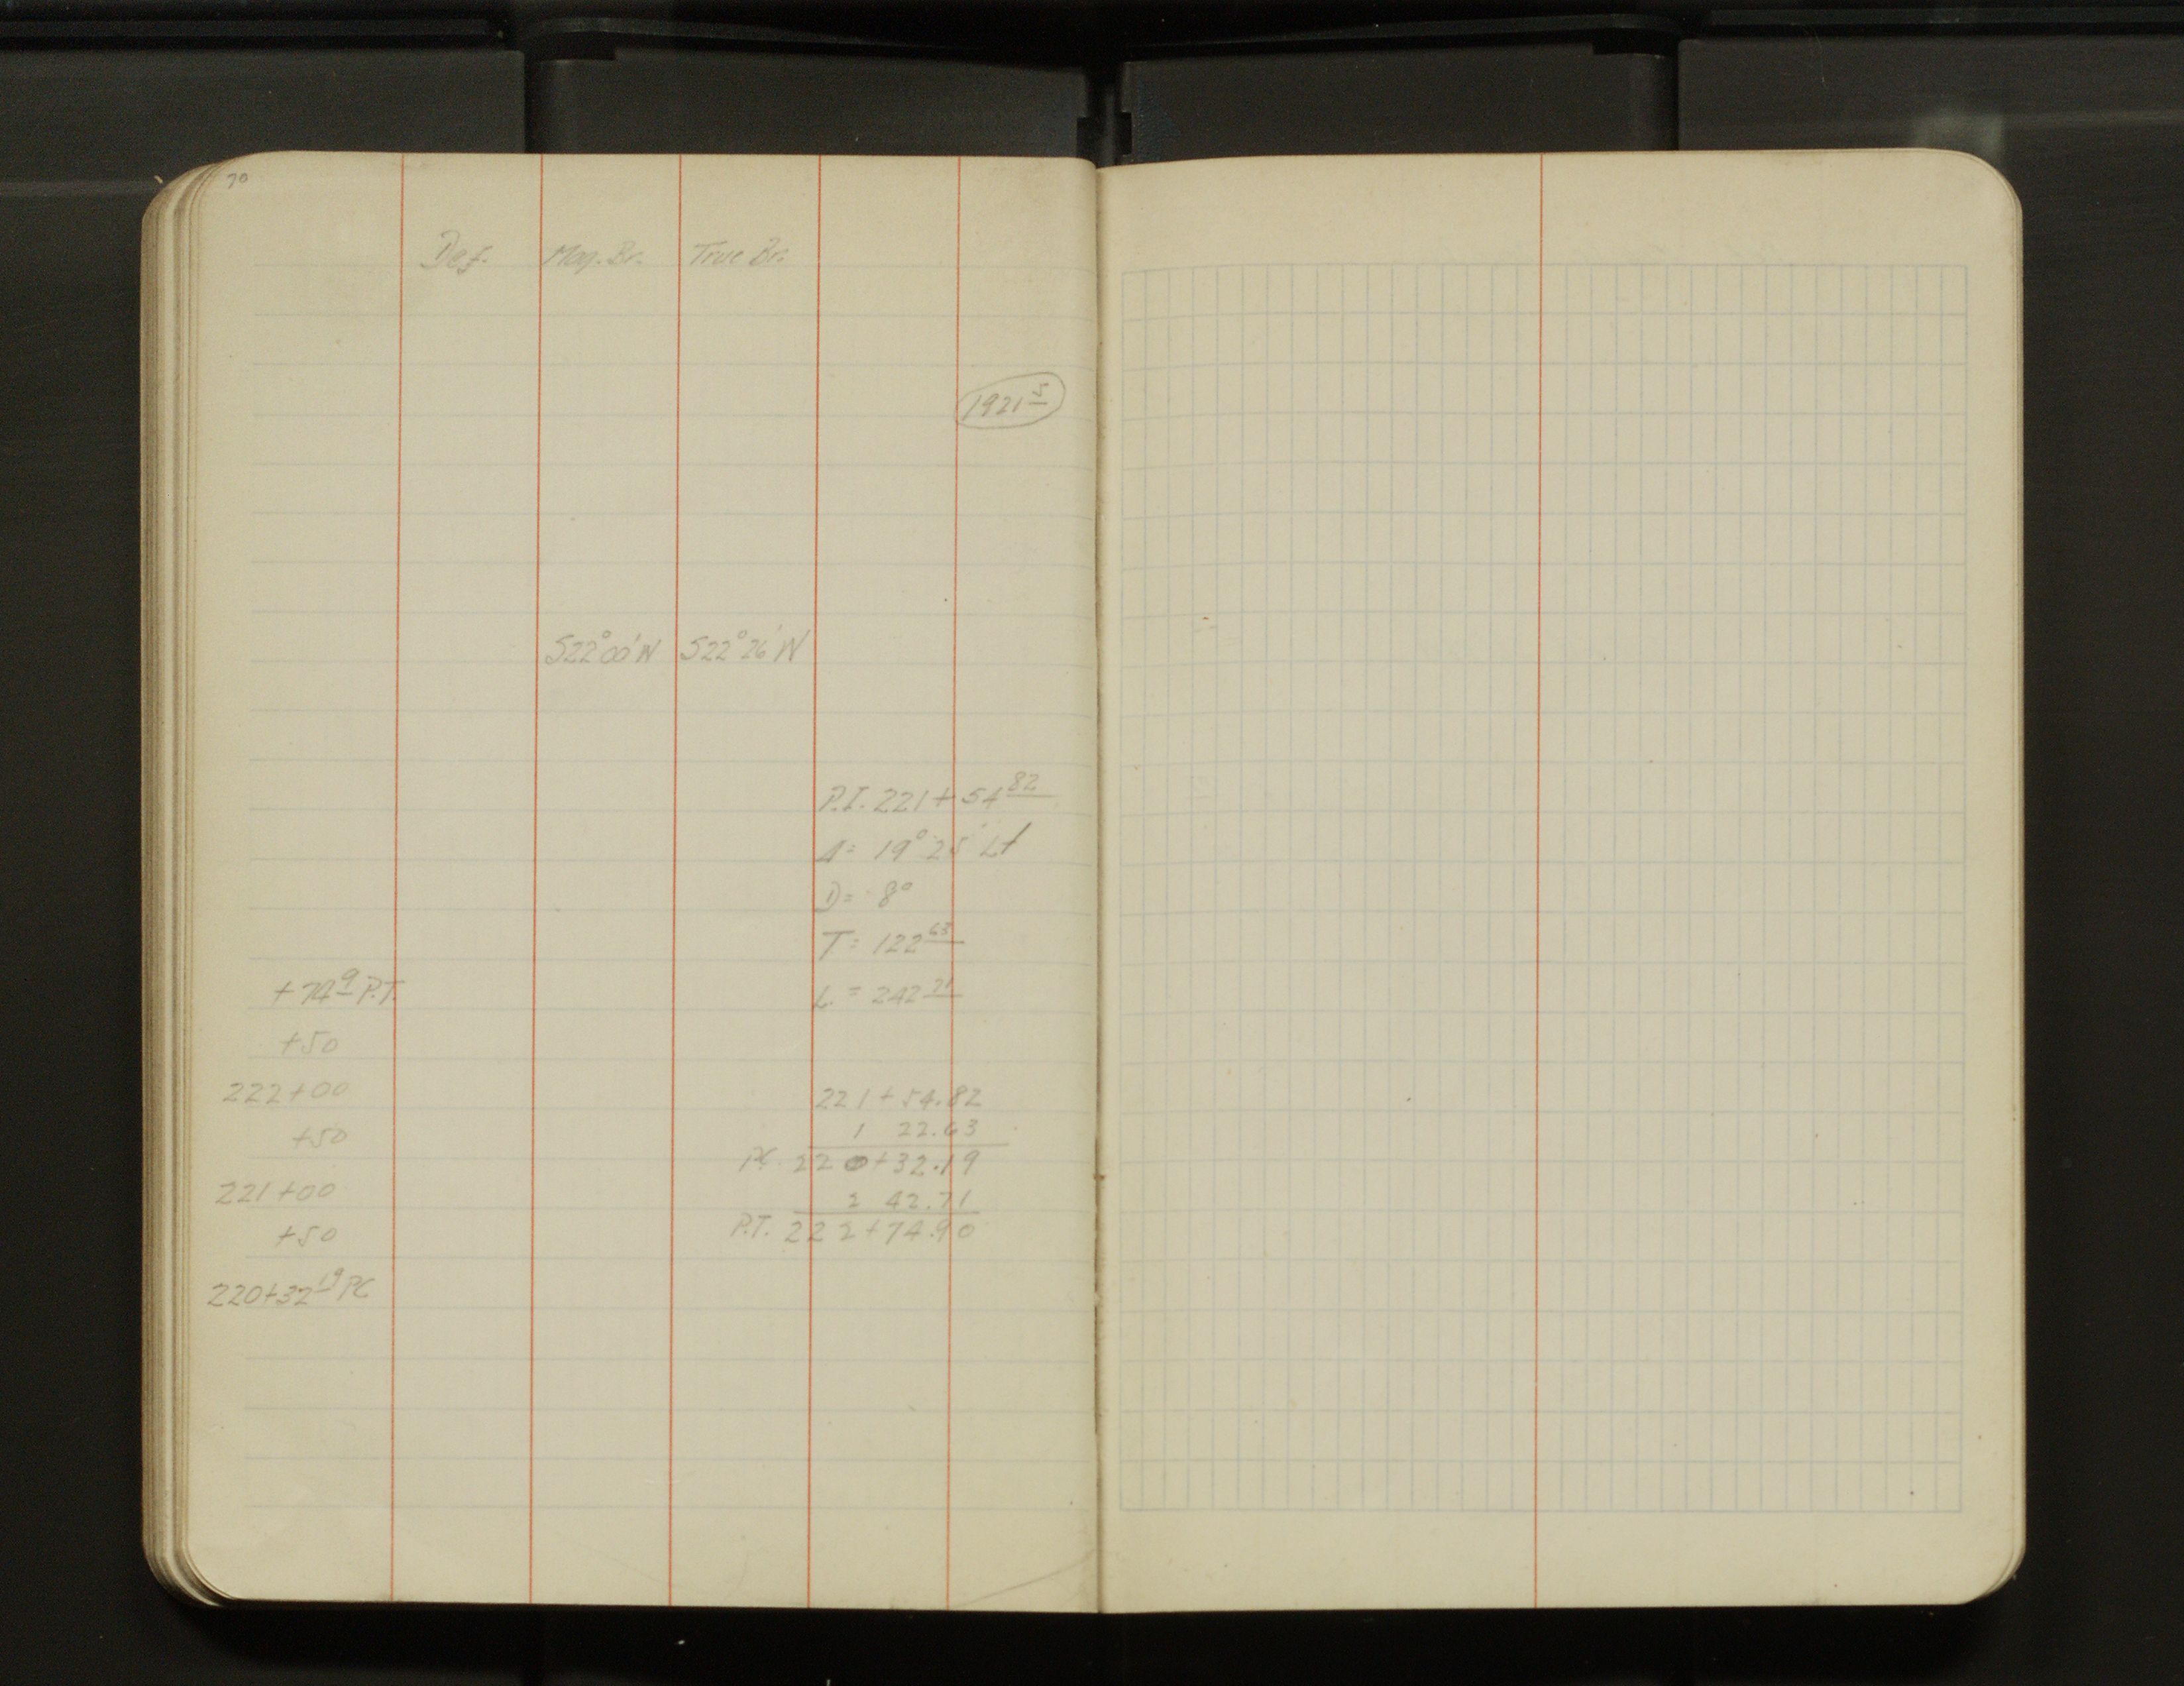 70
Def. Mag. Br. True Br.
1921 5
S22°00'W S22°26'W
P.I. 221+54 82
Δ= 19°25' Lt
D= 8°
T= 122 63
+74 9 P.T. L.= 242 71
+50
222+00 221+54.82
+50 1 22.63
PC 220+32.19
221+00 2 42.71
+50 P.T. 222+74.90
220+32 19 PC